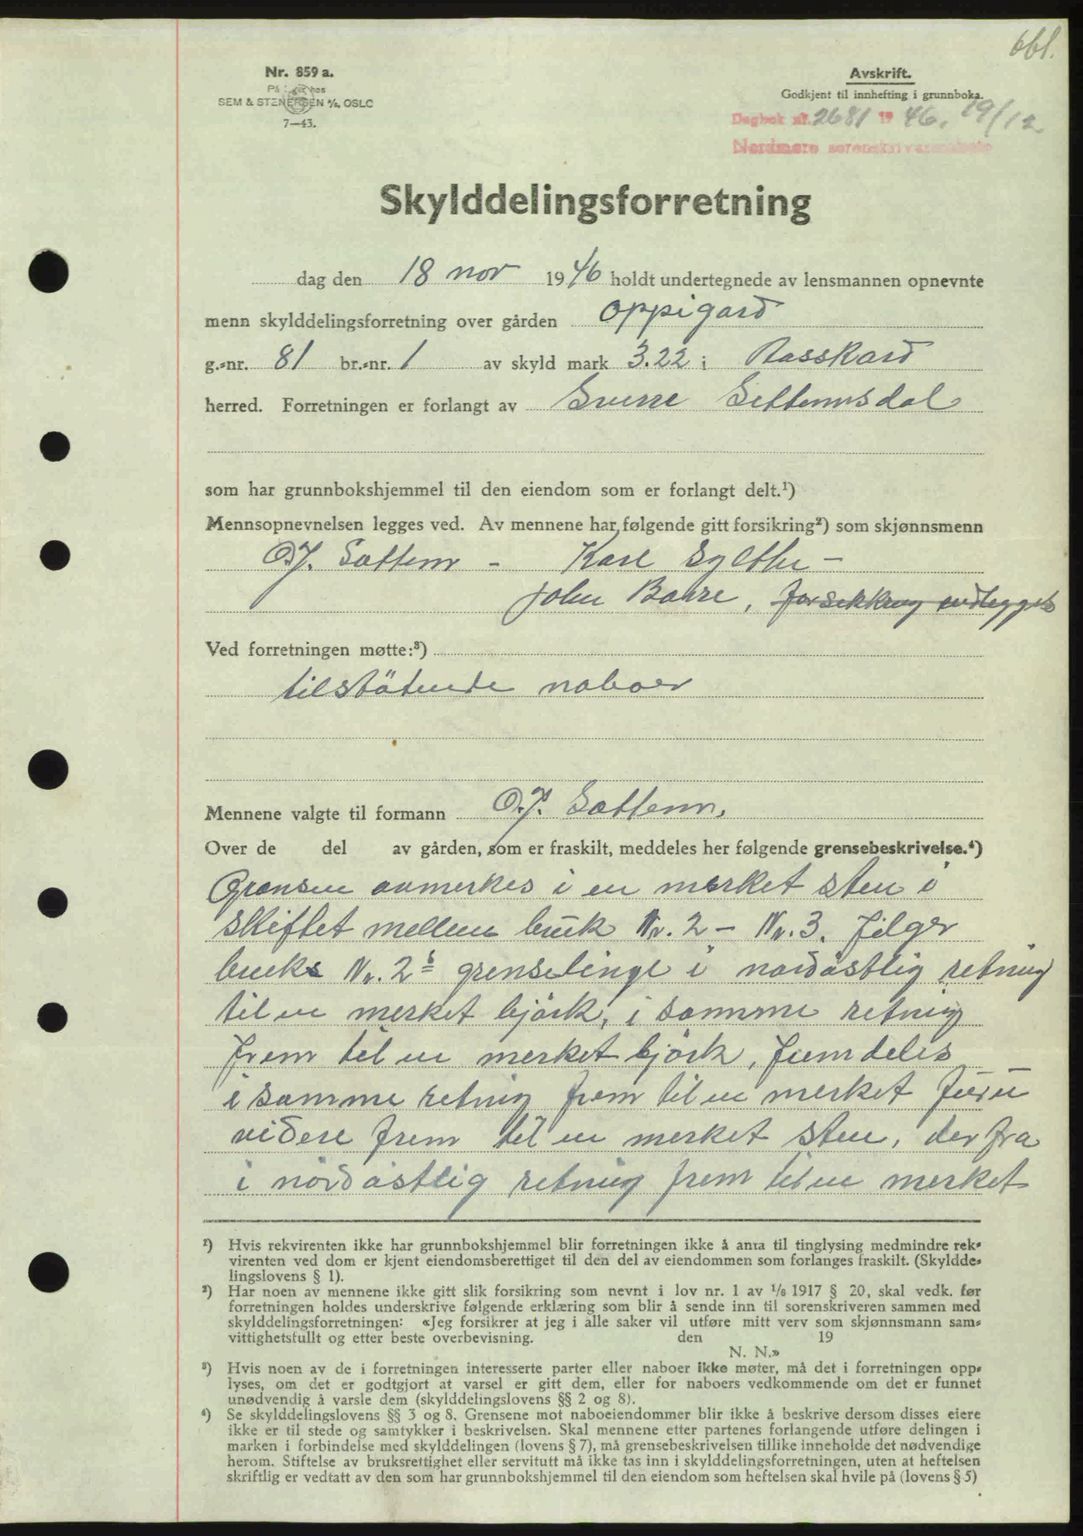 661.
Nr. 859 a.
SEM & STENERSEN A/S, OSLO
7—43.
Avskrift.
Godkjent til innhefting i grunnboka.
Dagbok nr. 2681 1946. 19/12
Nordmøre sorenskriverembete
Skylddelingsforretning
dag den 18 nov 1946 holdt undertegnede av lensmannen opnevnte
menn skylddelingsforretning over gården Oppigard
g.-nr. 81 br.-nr. 1 av skyld mark 3.22 i
herred. Forretningen er forlangt av Sverre Settemsdal
som har grunnbokshjemmel til den eiendom som er forlangt delt.¹)
Mennsopnevnelsen legges ved. Av mennene har følgende gitt forsikring²) som skjønnsmenn
O.J. Sættem - Karl Sylthe -
John Bøvre, forsikkring vedlegges
Ved forretningen møtte:³)
tilstötende naboer
Mennene valgte til formann O.J. Sættem,
Over de del av gården, som er fraskilt, meddeles her følgende grensebeskrivelse.⁴)
Grænsen avmerkes i en merket sten i
skiftet mellem bruk Nr. 2 - Nr. 3. følger
bruks Nr. 2s grenselinge i nordöstlig retning
til en merket björk, i samme retning
frem til en merket björk, fremdeles
i samme retning frem til en merket furu
videre frem til en merket sten, derfra
i nordöstlig retning frem til en merket
¹) Hvis rekvirenten ikke har grunnbokshjemmel blir forretningen ikke å anta til tinglysing medmindre rek-
virenten ved dom er kjent eiendomsberettiget til den del av eiendommen som forlanges fraskilt. (Skyldde-
lingslovens § 1).
²) Har noen av mennene ikke gitt slik forsikring som nevnt i lov nr. 1 av 1/6 1917 § 20, skal vedk. før
forretningen holdes underskrive følgende erklæring som blir å sende inn til sorenskriveren sammen med
skylddelingsforretningen: «Jeg forsikrer at jeg i alle saker vil utføre mitt verv som skjønnsmann sam-
vittighetsfullt og etter beste overbevisning. den 19
N. N.»
³) Hvis noen av de i forretningen interesserte parter eller naboer ikke møter, må det i forretningen opp-
lyses, om det er godtgjort at varsel er gitt dem, eller for naboers vedkommende om det er funnet
unødvendig å varsle dem (skylddelingslovens §§ 2 og 8).
⁴) Se skylddelingslovens §§ 3 og 8. Grensene mot naboeiendommer blir ikke å beskrive dersom disses eiere
ikke er til stede og samtykker i beskrivelsen. Skal mennene etter partenes forlangende utføre delingen i
marken i forbindelse med skylddelingen (lovens § 7), må grensebeskrivelsen tillike inneholde det nødvendige
herom. Stiftelse av bruksrettighet eller servitutt må ikke tas inn i skylddelingsforretningen, uten at heftelsen
skriftlig er vedtatt av den som har grunnbokshjemmel til den eiendom som heftelsen skal hvile på (lovens § 5)